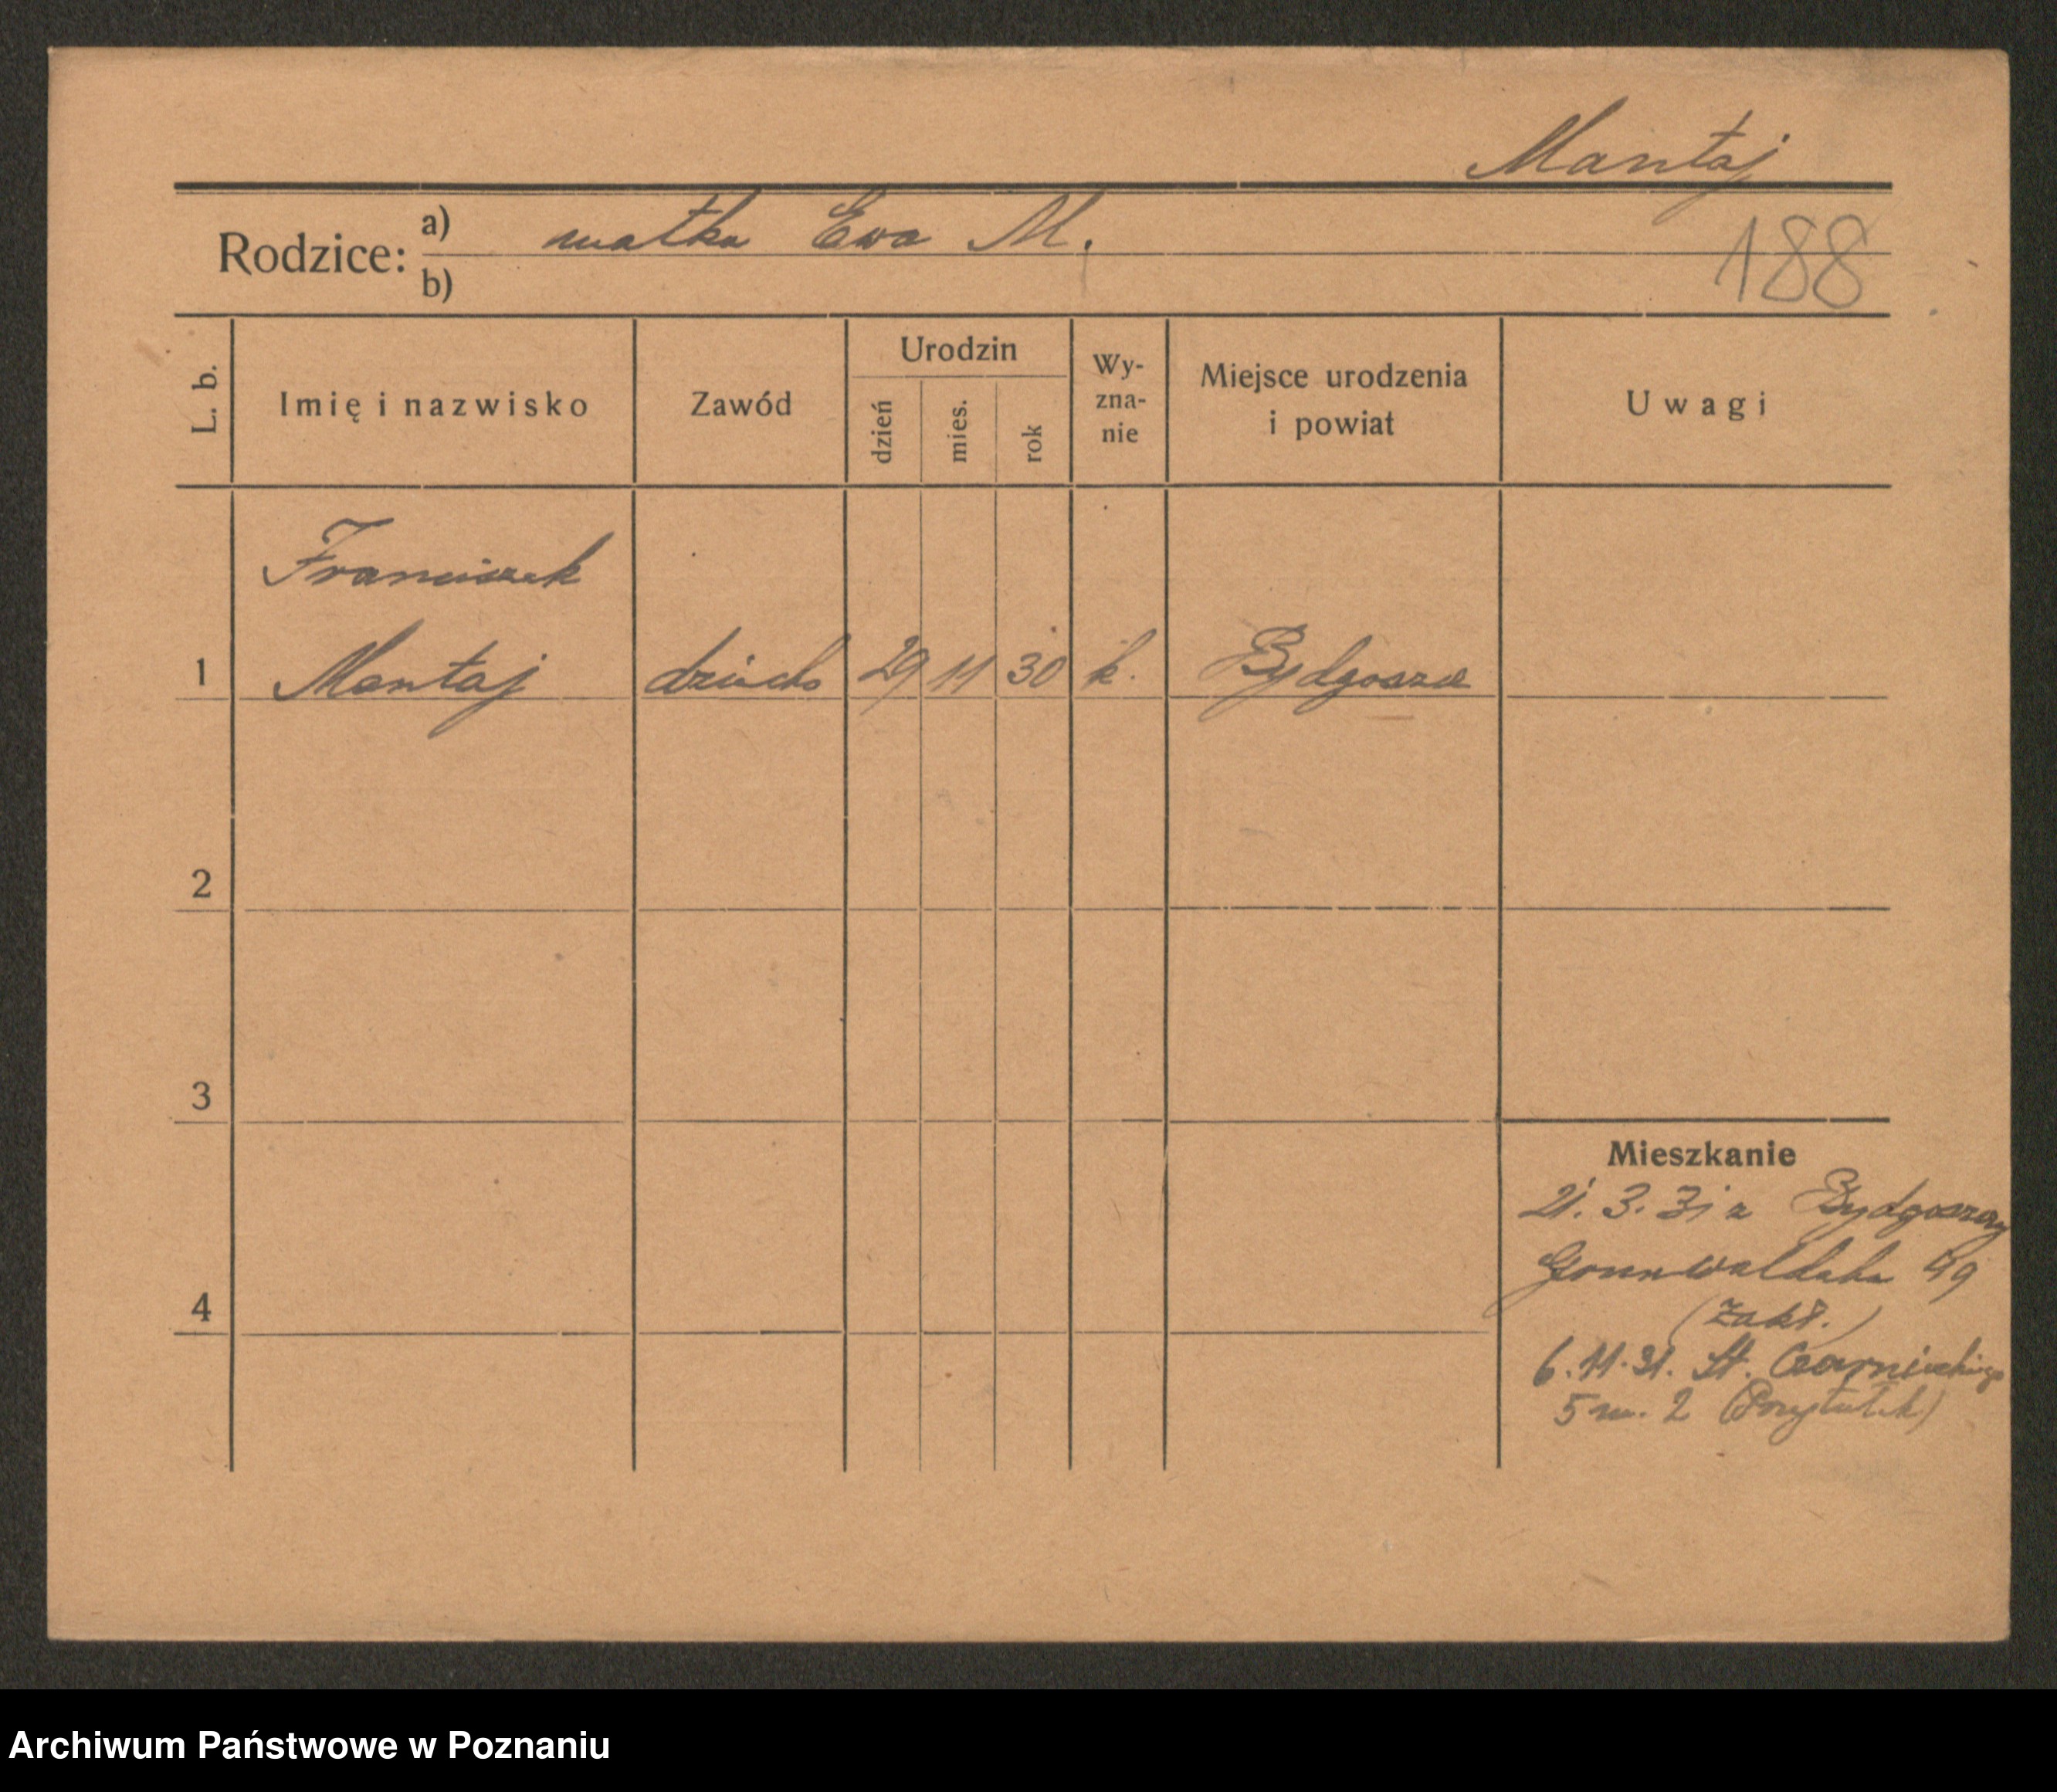 Mantaj
Rodzice: a) matka Ewa M.
b)
188
L. b.
Imię i nazwisko
Zawód
Urodzin
dzień
mies.
rok
Wy-
zna-
nie
Miejsce urodzenia
i powiat
Uwagi
Franciszek
1 Mantaj dziecko 29 11 30 k. Bydgoszcz
2
3
4
Mieszkanie
21. 3. 31 z Bydgoszczy
Grunwaldzka 49
(Zakł.)
6. 11. 31. St. Czarnieckiego
5 m. 2 (Przytułek)
Archiwum Państwowe w Poznaniu